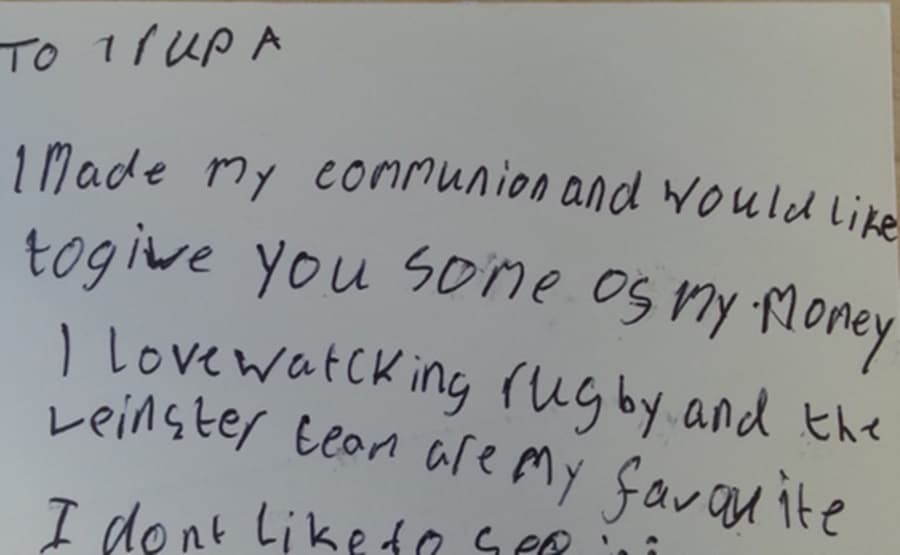 To IrUPA
I Made my communion and would like
togive you some os my Money
I lovewatcking rugby and the
Leinster team are my favouite
I dont like to see